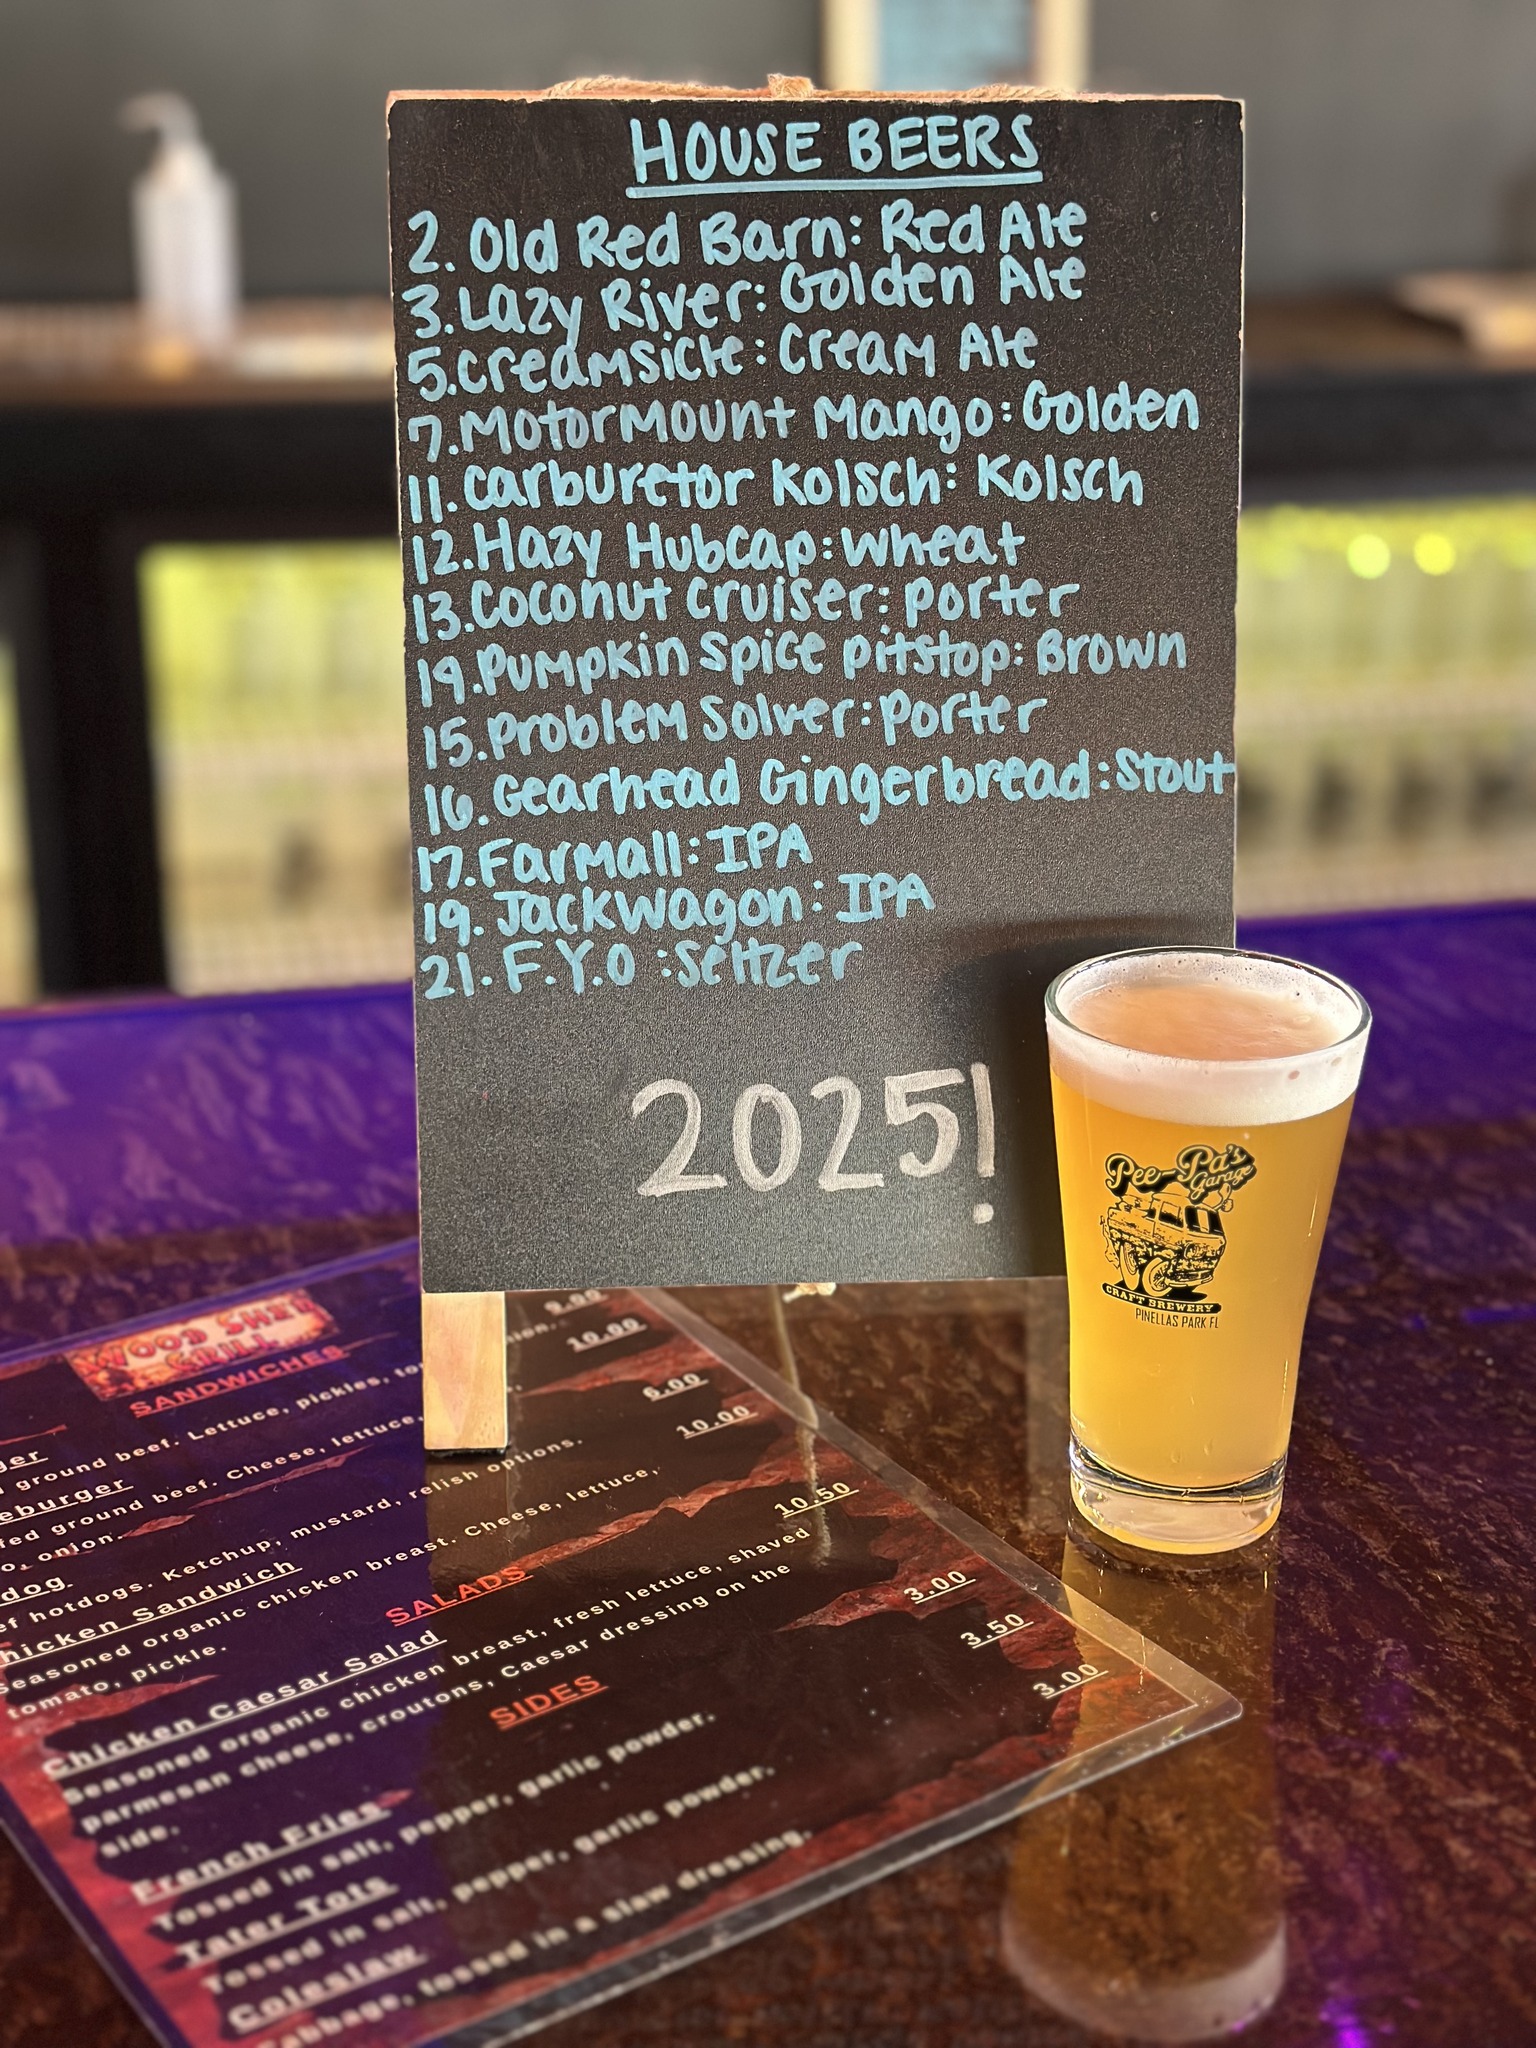 HOUSE BEERS
2. Old Red Barn: Red Ale
3. Lazy River: Golden Ale
5. Creamsicle: Cream Ale
7. Motormount Mango: Golden
11. Carburetor Kolsch: Kolsch
12. Hazy Hubcap: Wheat
13. Coconut Cruiser: Porter
14. Pumpkin Spice Pitstop: Brown
15. Problem Solver: Porter
16. Gearhead Gingerbread: Stout
17. Farmall: IPA
19. Jackwagon: IPA
21. F.Y.O: Seltzer
2025!
Pee-Pa's
Garage
CRAFT BREWERY
PINELLAS PARK FL
WOOD SHED
GRILL
SANDWICHES
9.00
ground beef. Lettuce, pickles,
10.00
eburger
fed ground beef. Cheese, lettuce,
o, onion.
6.00
dog
ef hotdogs. Ketchup, mustard, relish options.
10.00
hicken Sandwich
Seasoned organic chicken breast. Cheese, lettuce,
tomato, pickle.
SALADS
Chicken Caesar Salad 10.50
Seasoned organic chicken breast, fresh lettuce, shaved
parmesan cheese, croutons, Caesar dressing on the
side.
SIDES
French Fries 3.00
Tossed in salt, pepper, garlic powder.
Tater Tots 3.50
Tossed in salt, pepper, garlic powder.
Coleslaw 3.00
Cabbage, tossed in a slaw dressing.